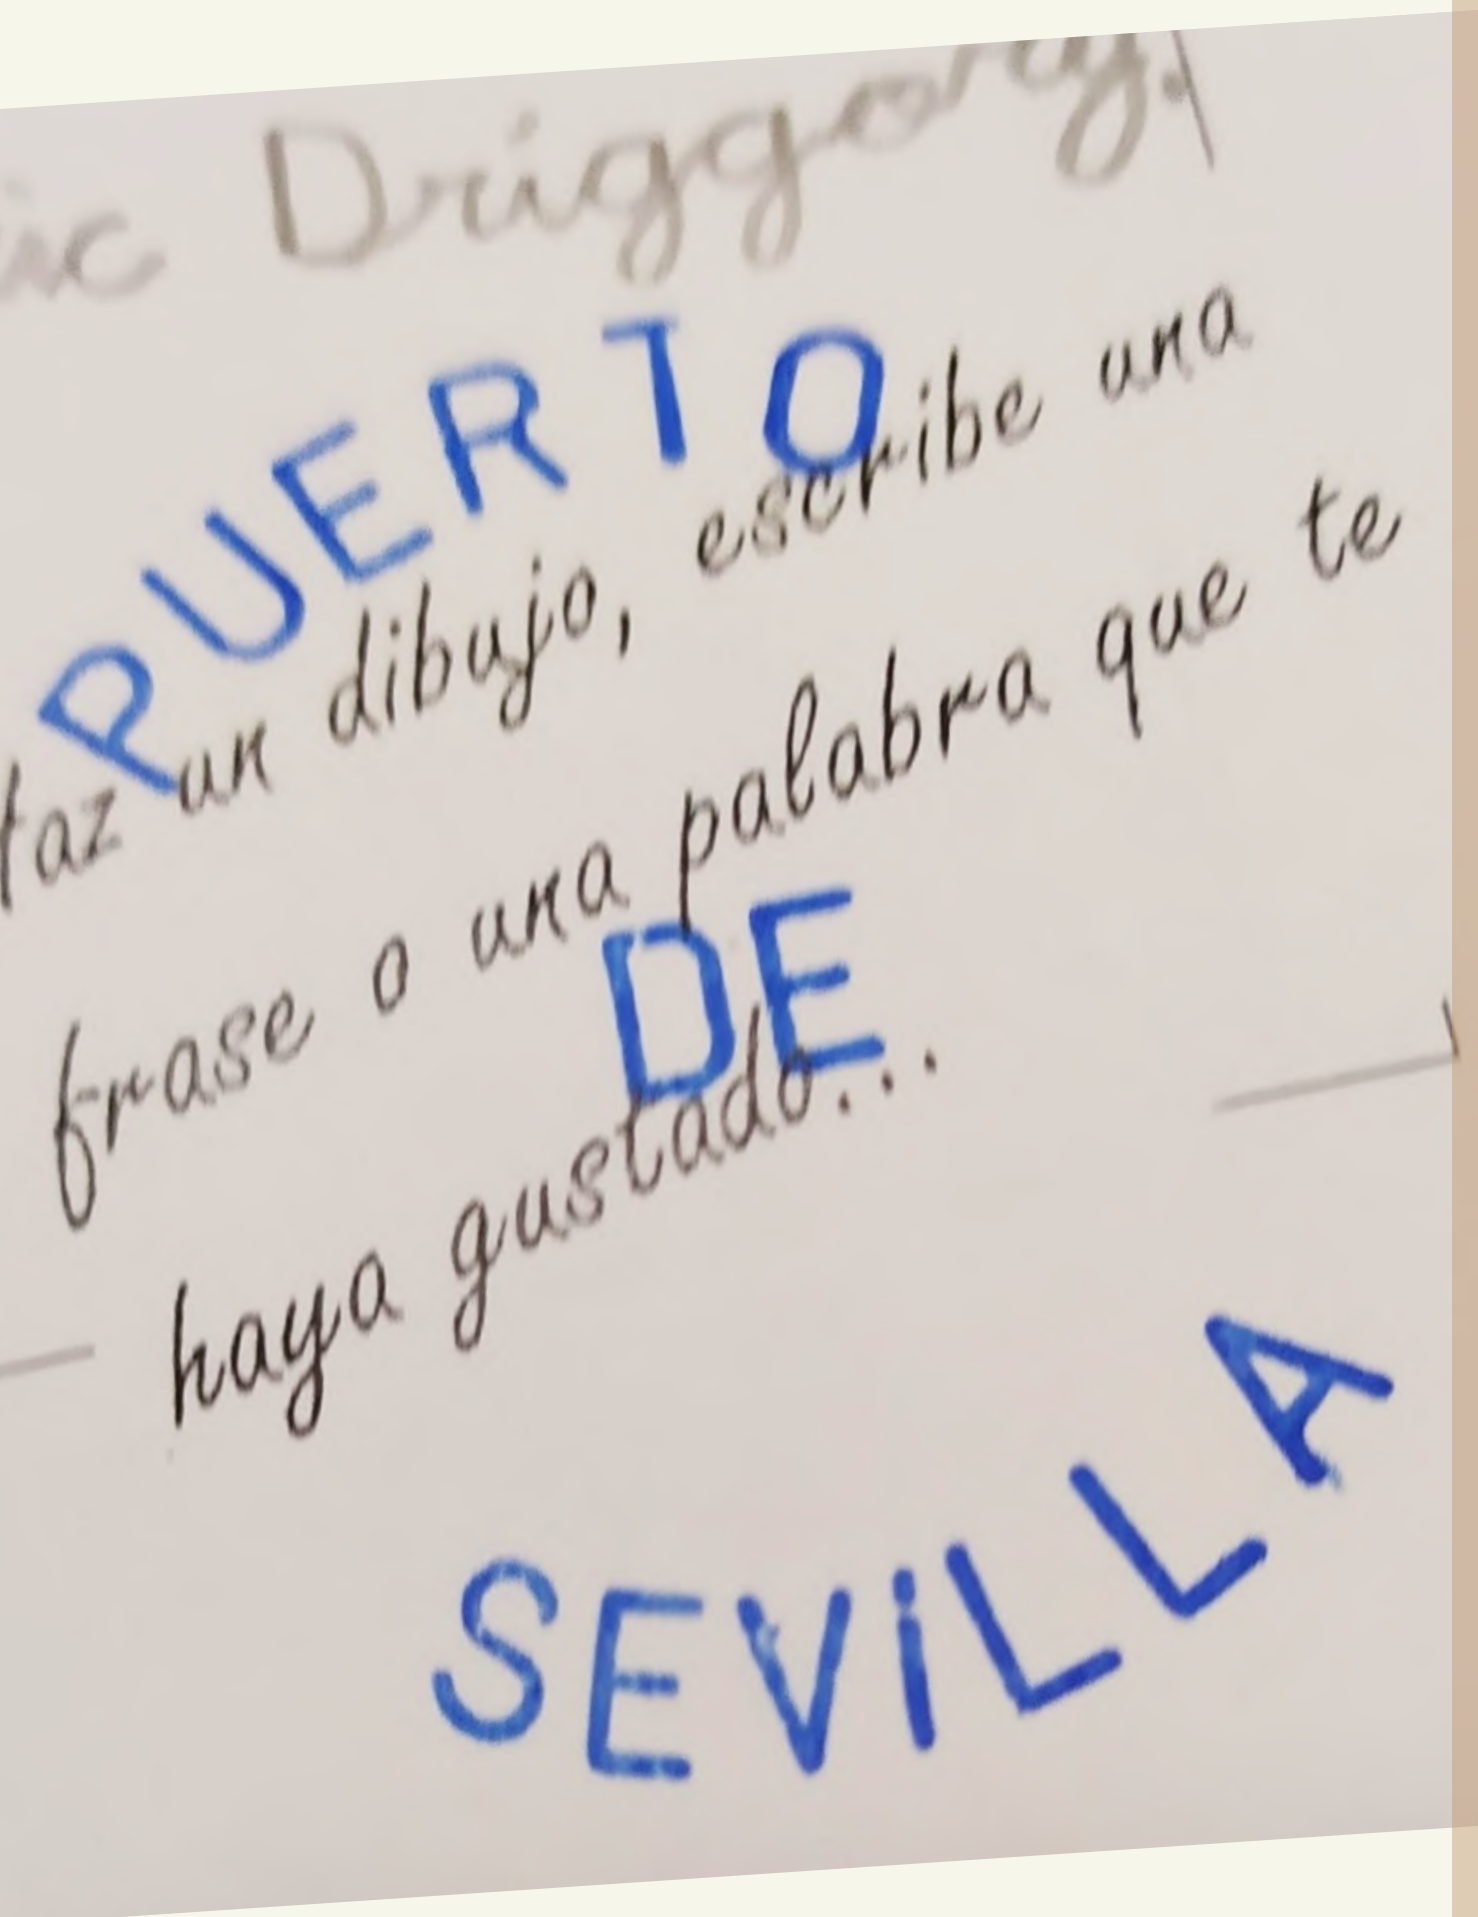 Driggory.
PUERTO
Haz un dibujo, escribe una
frase o una palabra que te
DE
haya gustado...
SEVILLA